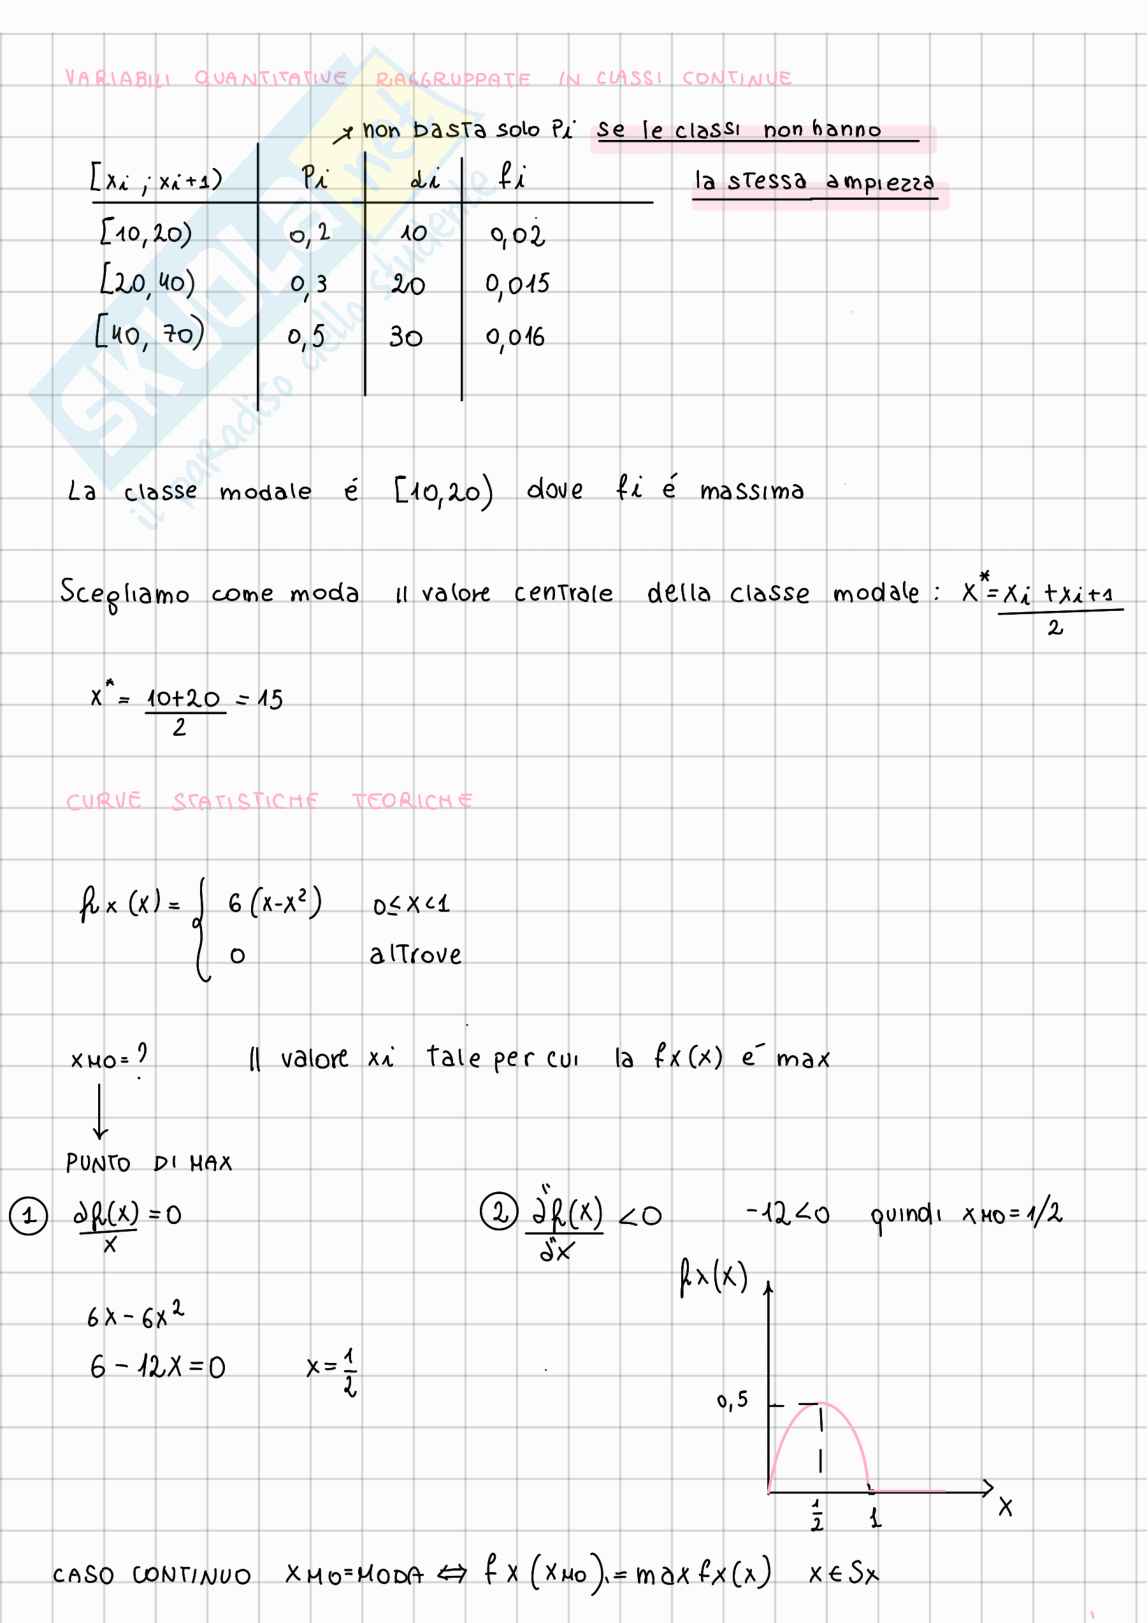 VARIABILI QUANTITATIVE RAGGRUPPATE IN CLASSI CONTINUE
non basta solo Pi se le classi non hanno
la stessa ampiezza
[xi ; xi+1) Pi di fi
[10,20) 0,2 10 0,02
[20,40) 0,3 20 0,015
[40, 70) 0,5 30 0,016
SKUOLA.net
il paradiso dello studente
La classe modale é [10,20) dove fi é massima
Scegliamo come moda il valore centrale della classe modale : x* = xi + xi+1 / 2
x* = 10+20 / 2 = 15
CURVE STATISTICHE TEORICHE
fx (x) = { 6 (x-x²) 0≤x<1
0 altrove
xMO = ? Il valore xi tale per cui la fx(x) e' max
PUNTO DI MAX
① ∂f(x) / x = 0 ② ∂"f(x) / ∂"x <0 -12<0 quindi xMO = 1/2
fx(x)
6x - 6x²
6 - 12x = 0 x = 1/2
0,5
1/2 1 x
CASO CONTINUO xMO = MODA ⇔ fx (xMO) = max fx(x) x ∈ Sx